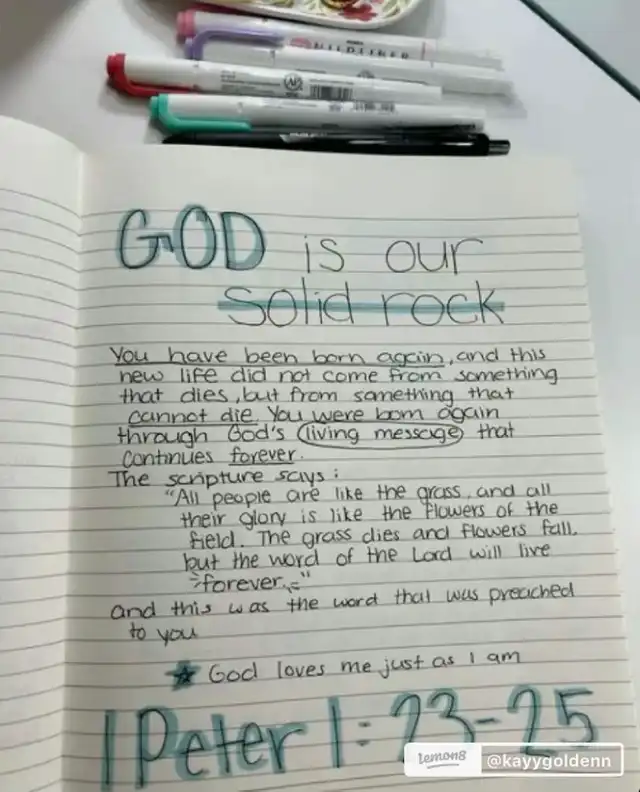 MILDLINER
GOD is our
solid rock
You have been born again, and this
new life did not come from something
that dies, but from something that
cannot die. You were born again
through God's living message that
continues forever.
The scripture says:
"All people are like the grass, and all
their glory is like the flowers of the
field. The grass dies and flowers fall,
but the word of the Lord will live
forever."
and this was the word that was preached
to you
God loves me just as I am
1 Peter 1:23-25
lemon8 @kayygoldenn